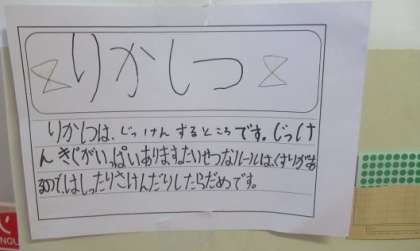 りかしつ
りかしつは、じっけんするところです。じっけ
んきぐがいっぱいあります。たいせつなルールは、くすりがあ
るので、はしったりさけんだりしたらだめです。